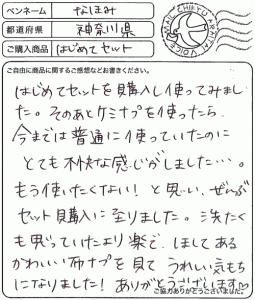 ペンネーム なほみ
都道府県 神奈川県
ご購入商品 はじめてセット
ご自由に商品に関するご感想などお書きください。
はじめてセットを購入し使ってみまし
た。そのあとケミナプを使ったら
今までは普通に使っていたのに
とても不快な感じがしました…。
もう使いたくない!と思い、ぜんぶ
セット購入に至りました。洗たく
も思っていたより楽で、ほしてある
かわいい布ナプを見てうれしい気もち
になりました!ありがとうございます
ご協力ありがとうございました。